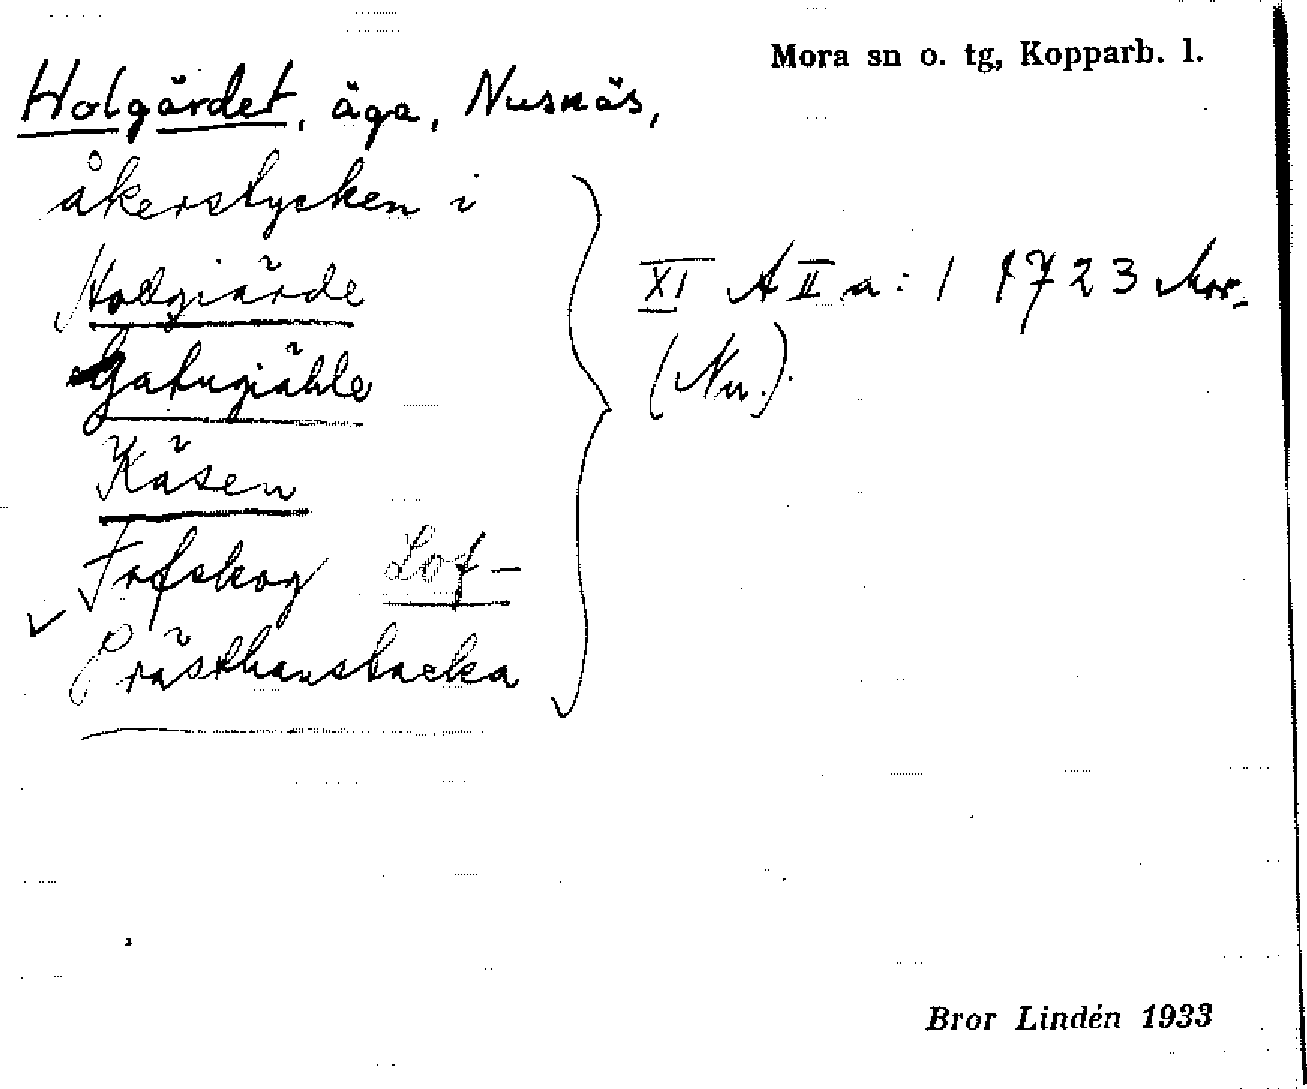 Mora sn o. tg, Kopparb. l.
Holgärdet, äga, Nusnäs,
åkerstycken i
Holgiärde
XI A II a: 1 1723 Mor.
(Nu.)
Gatugiähle
Käsen
Lof-
Prästhansbacka
Bror Lindén 1933